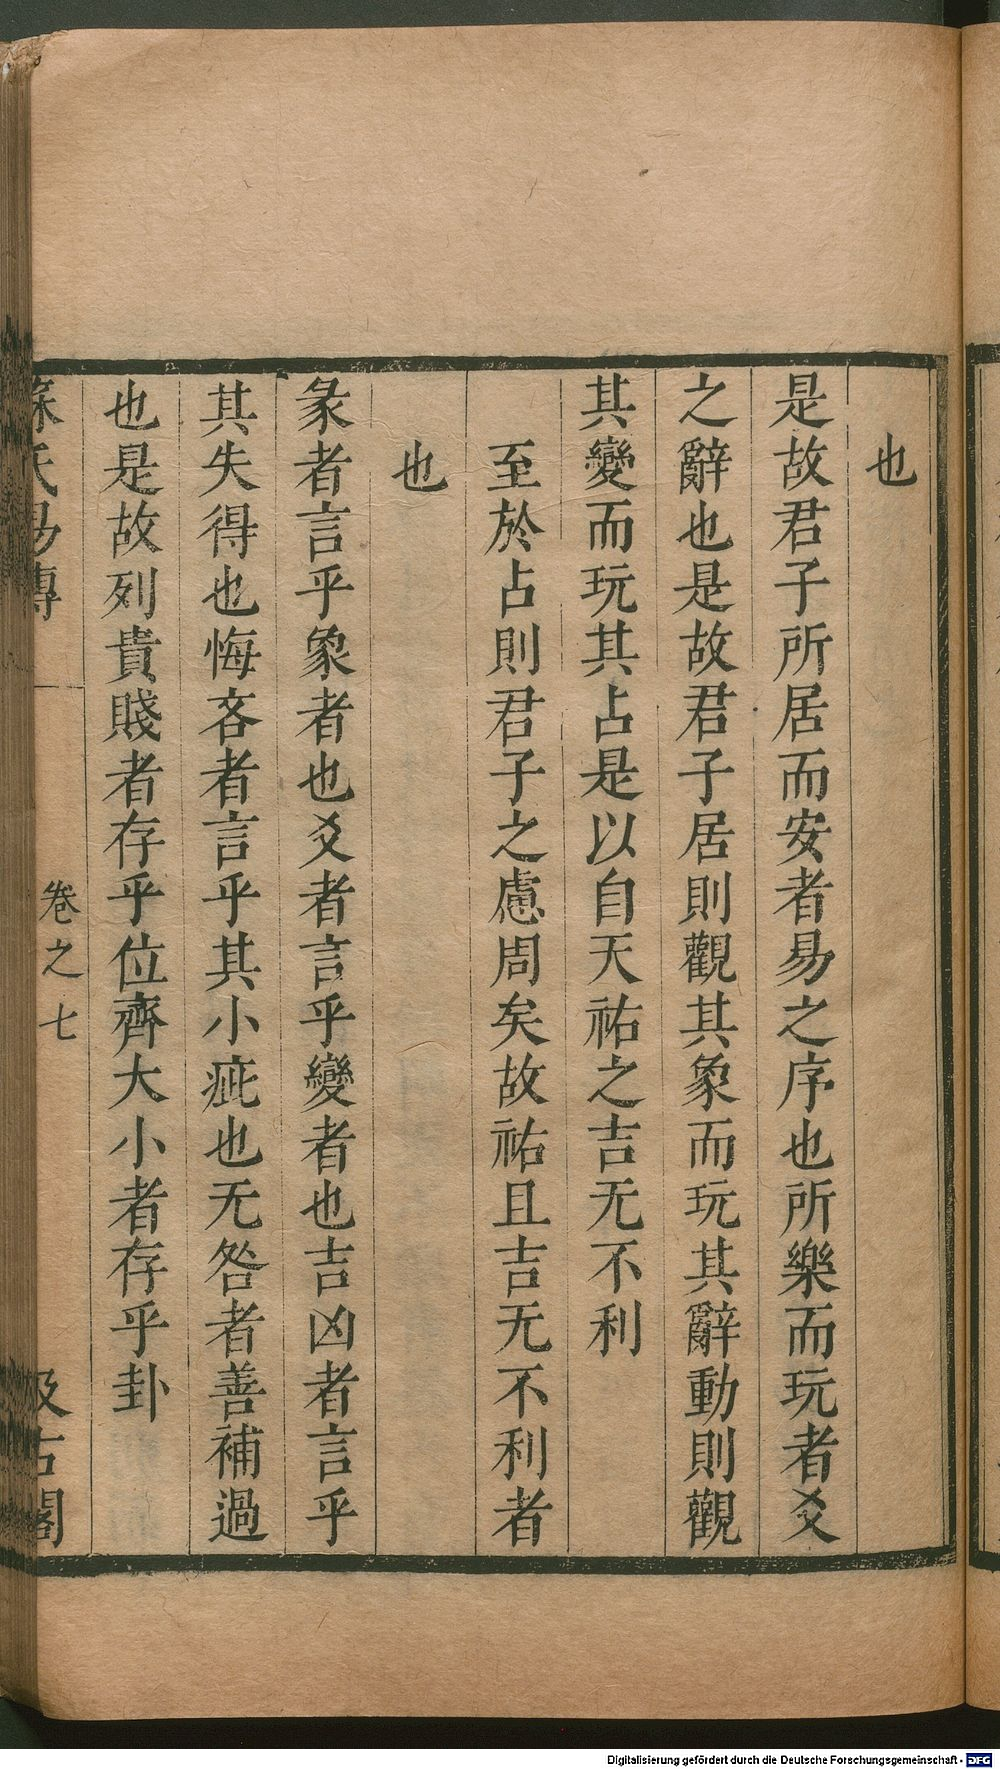 也
是故君子所居而安者易之序也所樂而玩者爻
之辭也是故君子居則觀其象而玩其辭動則觀
其變而玩其占是以自天祐之吉无不利
至於占則君子之慮周矣故祐且吉无不利者
也
彖者言乎象者也爻者言乎變者也吉凶者言乎
其失得也悔吝者言乎其小疵也无咎者善補過
也是故列貴賤者存乎位齊大小者存乎卦
蘇氏易傳
卷之七
汲古閣
Digitalisierung gefördert durch die Deutsche Forschungsgemeinschaft - DFG